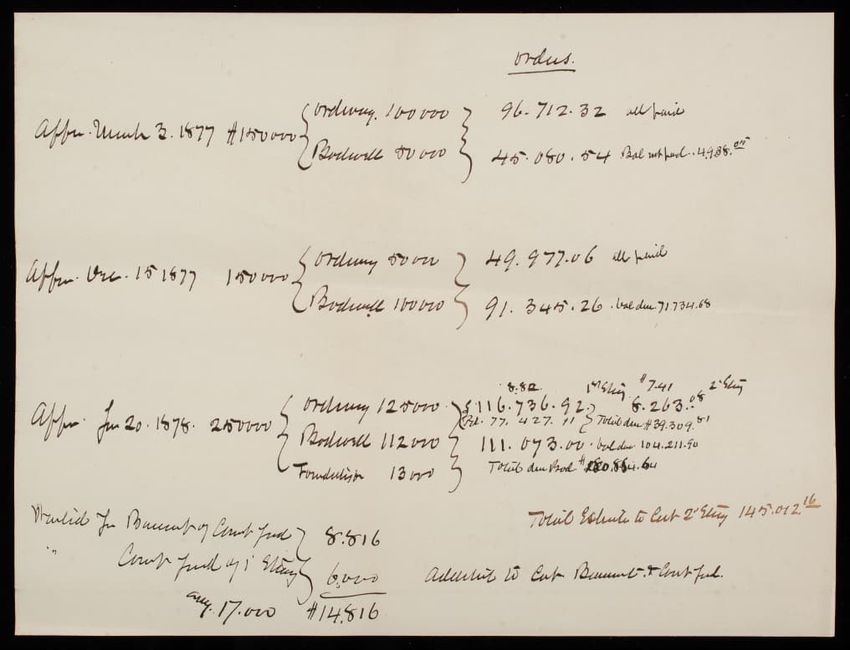 Orders.
Appn. March 3. 1877 $150000 { Ordway. 100000 } 96.712.32 all paid
Bodwell 50000 45.080.54 Bal not paid. 4988.
Appn. Dec. 15 1877 150000 { Ordway 50000 } 49.977.06 all paid
Bodwell 100000 91.345.26 . bal due 71734.68
8.82 1st Story $7.41 2d Story
Appn. Jun 20. 1878. 250000 { Ordway 125000 } 116.736.92 } 8.263.08
Pd. 77.427.11 } Total due $39.309.81
Bodwell 112000 111.073.00 . bal due 104.211.90
Foundation 13000 Total due Bod
Total Estimate to Cut 2d Story 145.012.16
Wanted for Basement of Court fund } 8.816
" Court fund of 1 Story } 6,000
17.000 $14.816
to Cut Basement & Court fnd.